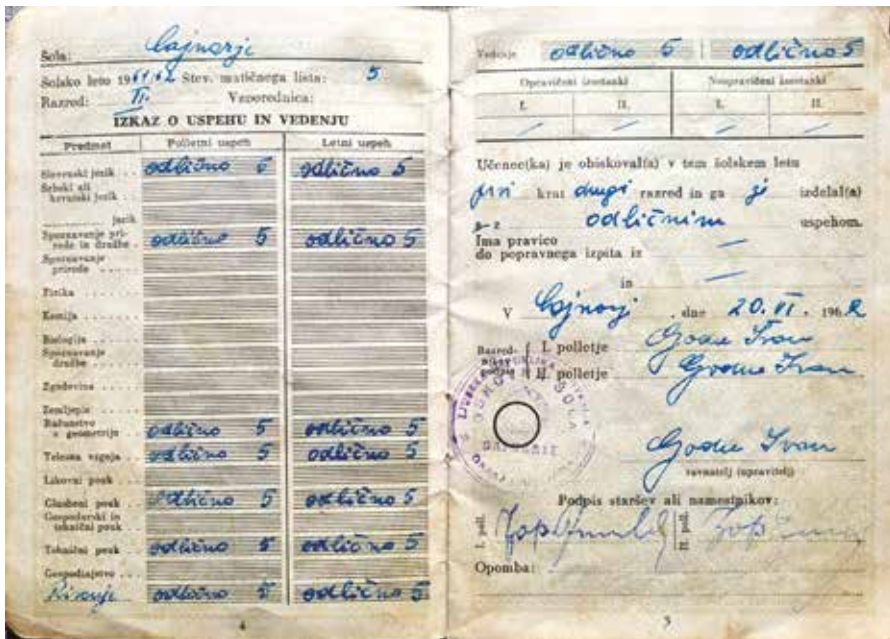 Šola: Cajnarje
Šolsko leto 1961/62 Štev. matičnega lista: 5
Razred: II. Vzporednica:
IZKAZ O USPEHU IN VEDENJU
Predmet Polletni uspeh Letni uspeh
Slovenski jezik odlično 5 odlično 5
Srbski ali
hrvatski jezik
jezik
Spoznavanje pri-
rode in družbe odlično 5 odlično 5
Spoznavanje
prirode
Fizika
Kemija
Biologija
Spoznavanje
družbe
Zgodovina
Zemljepis
Računstvo
z geometrijo odlično 5 odlično 5
Telesna vzgoja odlično 5 odlično 5
Likovni pouk
Glasbeni pouk odlično 5 odlično 5
Gospodarski in
tehnični pouk
Tehnični pouk odlično 5 odlično 5
Gospodinjstvo
Risanje odlično 5 odlično 5
4
Vedenje odlično 5 odlično 5
Opravičeni izostanki Neopravičeni izostanki
I. II. I. II.
Učenec(ka) je obiskoval(a) v tem šolskem letu
prvi krat drugi razred in ga je izdelal(a)
z odličnim uspehom.
Ima pravico
do popravnega izpita iz
in
V Cajnarj , dne 20. VI. 1962
Razred-
nikov
podpis I. polletje Ivan
II. polletje Ivan
OSNOVNA ŠOLA
CAJNARJE
Ivan
ravnatelj (upravitelj)
Podpis staršev ali namestnikov:
I. poll. II. poll.
Opomba:
5